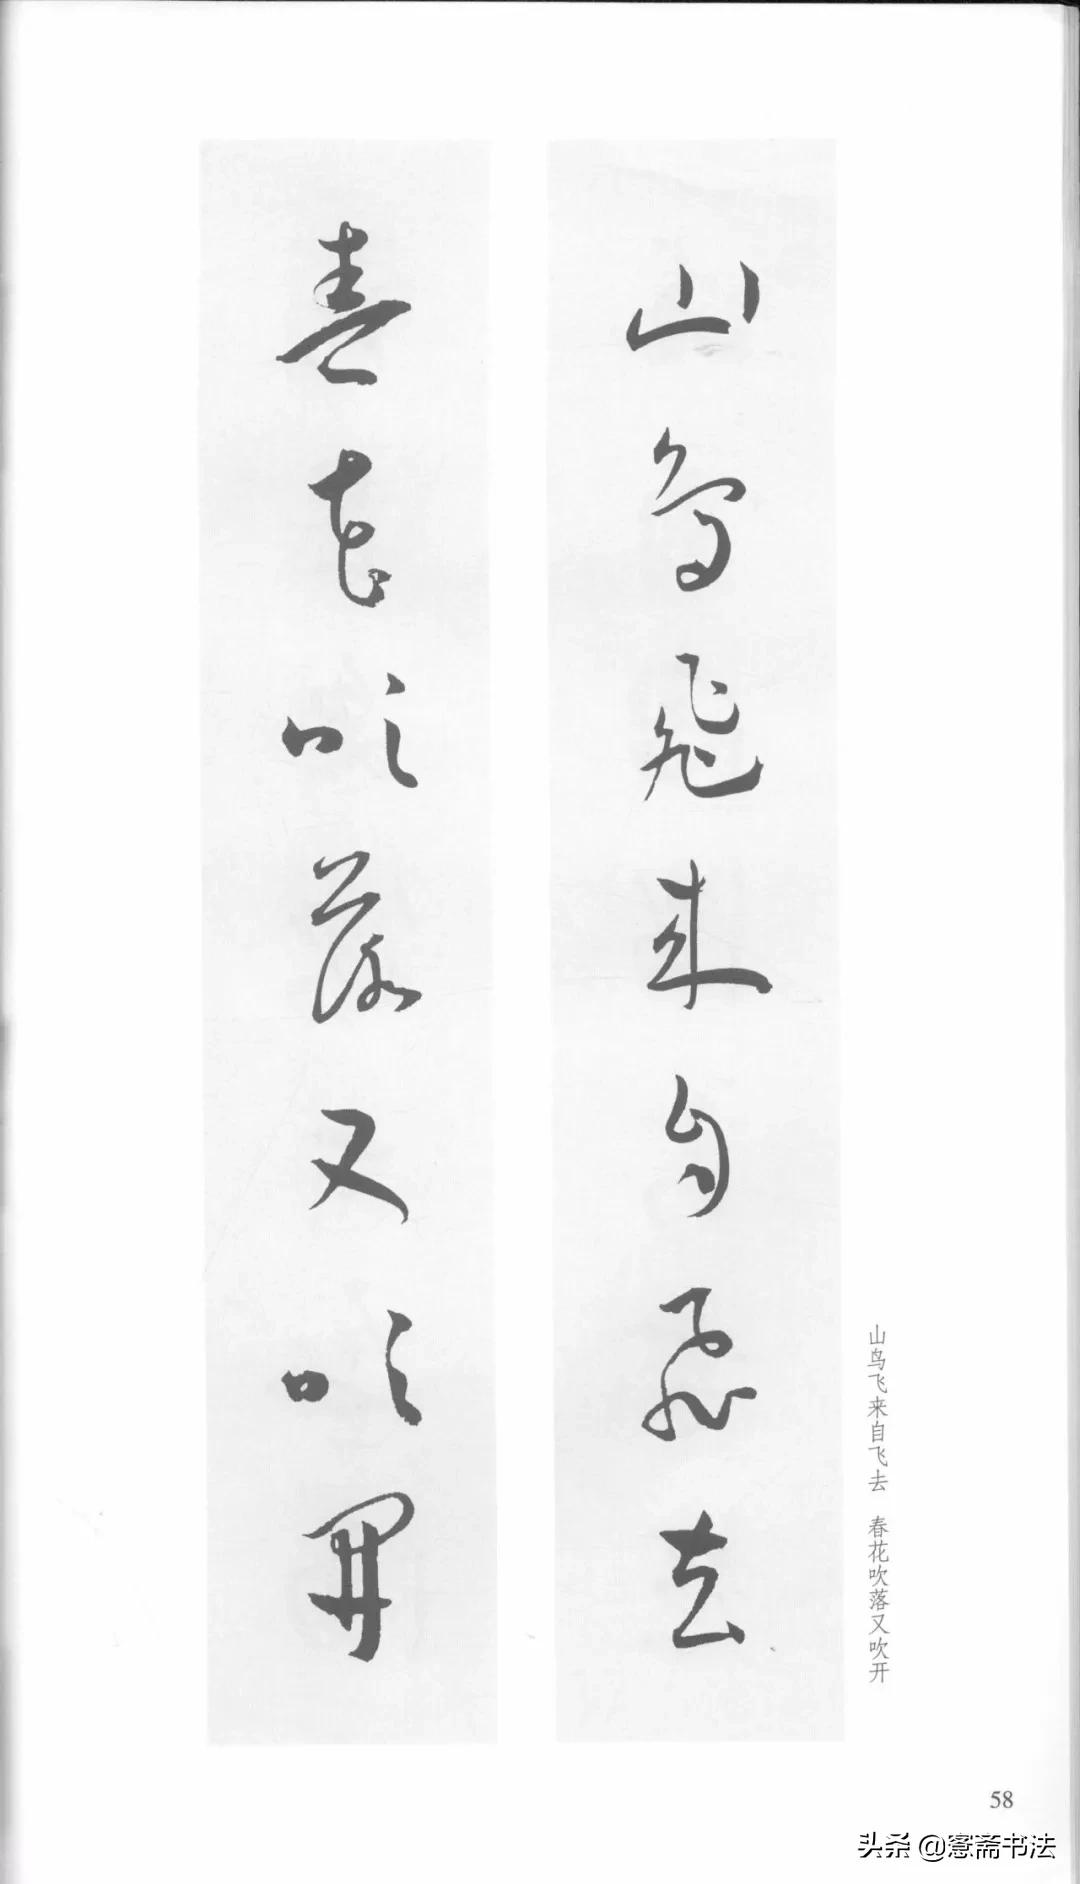 山鳥飛来自飛去
春花吹落又吹開
山鸟飞来自飞去 春花吹落又吹开
58
头杀@愙斋书法